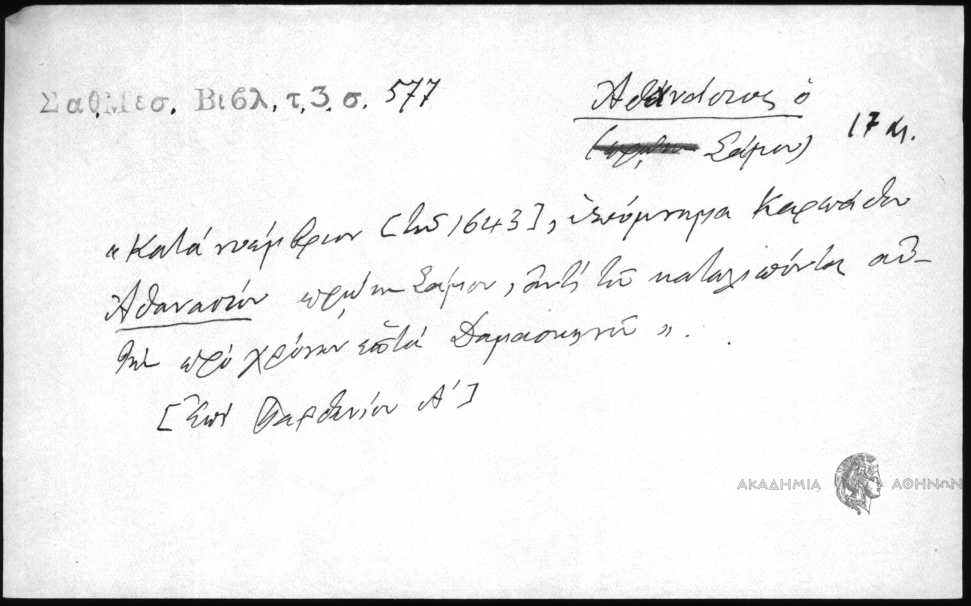 Σαθ. Μεσ. Βιβλ. τ. 3. σ. 577
Ἀθανάσιος ὁ
(πρώην Σάμου) 17 αι.
«Κατά νοέμβριον [τοῦ 1643], ὑπόμνημα Καρπάθου
Ἀθανασίου πρώην Σάμου, ἀντί τοῦ καταλιπόντος αὐ-
τήν πρό χρόνων ἑπτά Δαμασκηνοῦ».
[Ἐπί Παρθενίου Α΄]
ΑΚΑΔΗΜΙΑ ΑΘΗΝΩΝ